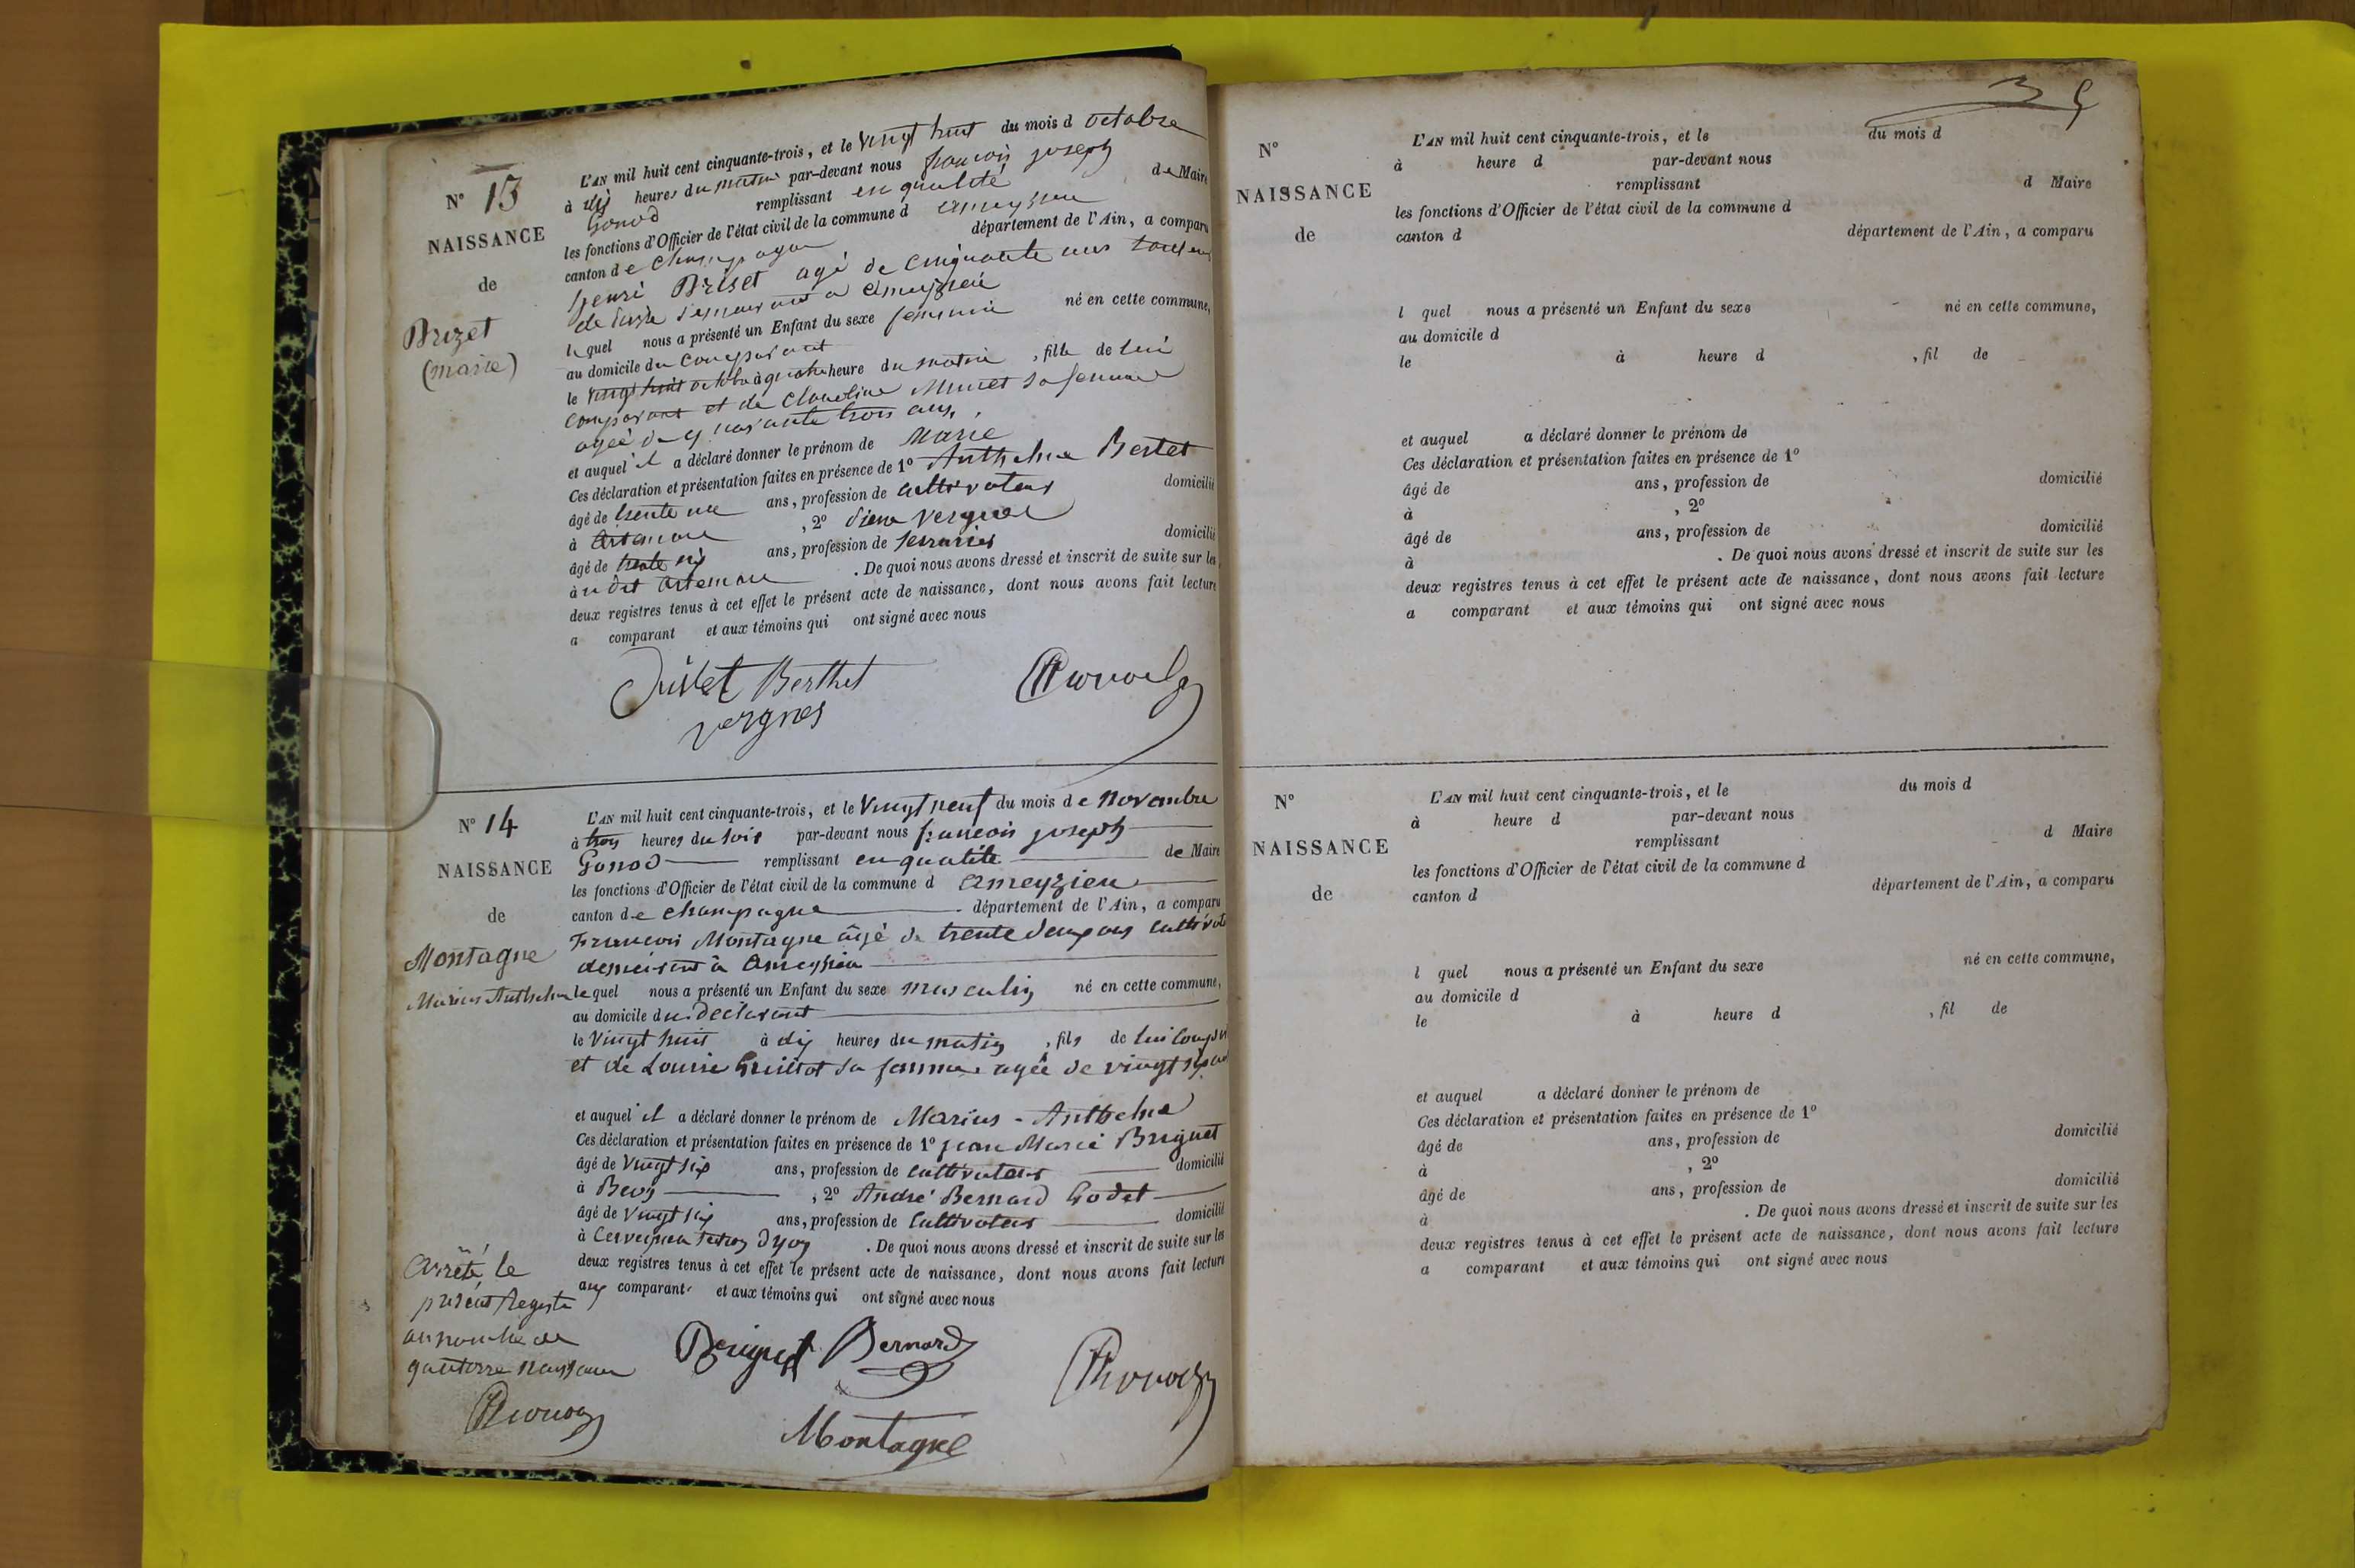 N° 13
NAISSANCE
de
Brizet
(marie)
L'AN mil huit cent cinquante-trois, et le Vingt huit du mois d octobre
à dix heures du matin par-devant nous francois joseph
Gonod remplissant en qualité de Maire
les fonctions d'Officier de l'état civil de la commune d ameyzieu
canton de champagne département de l'Ain, a comparu
henri Briset agé de cinquante
demeurant a ameyzieu
lequel nous a présenté un Enfant du sexe feminin né en cette commune,
au domicile du comparant
le vingt huit octobre à quatre heure du matin, fille de lui
comparant et de Claudine Munet sa femme
agée de quarante trois ans,
et auquel il a déclaré donner le prénom de Marie
Ces déclaration et présentation faites en présence de 1° Anthelme Bertet
âgé de trente un ans, profession de cultivateur domicilié
à artemare, 2° vergnes
âgé de trente six ans, profession de serrurier domicilié
à u dit artemare. De quoi nous avons dressé et inscrit de suite sur les
deux registres tenus à cet effet le présent acte de naissance, dont nous avons fait lecture
a comparant et aux témoins qui ont signé avec nous
Berthet
vergnes
N° 14
NAISSANCE
de
Montagne
Marius Anthelme
L'AN mil huit cent cinquante-trois, et le Vingt neuf du mois de novembre
à trois heures du soir par-devant nous francois joseph
Gonod remplissant en qualité de Maire
les fonctions d'Officier de l'état civil de la commune d ameyzieu
canton de champagne département de l'Ain, a comparu
Francois Montagne âgé de trente deux ans cultivat
demeurant à ameyzieu
lequel nous a présenté un Enfant du sexe masculin né en cette commune,
au domicile du déclarant
le Vingt huit à dix heures du matin, fils de lui compar
et de Louise Guillot sa femme agée de vingt six ans
et auquel il a déclaré donner le prénom de Marius - Anthelme
Ces déclaration et présentation faites en présence de 1° jean Marie Bruguet
âgé de Vingt six ans, profession de cultivateur domicilié
à Beon, 2° André Bernard Godet
âgé de Vingt six ans, profession de cultivateur domicilié
à Cerveyrieu. De quoi nous avons dressé et inscrit de suite sur les
deux registres tenus à cet effet le présent acte de naissance, dont nous avons fait lecture
aux comparant et aux témoins qui ont signé avec nous
Bernard
Montagne
Arrêté le
présent Registre
au nombre de
quatorze naissances
N°
NAISSANCE
de
L'AN mil huit cent cinquante-trois, et le du mois d
à heure d par-devant nous
remplissant d Maire
les fonctions d'Officier de l'état civil de la commune d
canton d département de l'Ain, a comparu
l quel nous a présenté un Enfant du sexe né en cette commune,
au domicile d
le à heure d , fil de
et auquel a déclaré donner le prénom de
Ces déclaration et présentation faites en présence de 1°
âgé de ans, profession de domicilié
à , 2°
âgé de ans, profession de domicilié
à . De quoi nous avons dressé et inscrit de suite sur les
deux registres tenus à cet effet le présent acte de naissance, dont nous avons fait lecture
a comparant et aux témoins qui ont signé avec nous
N°
NAISSANCE
de
L'AN mil huit cent cinquante-trois, et le du mois d
à heure d par-devant nous
remplissant d Maire
les fonctions d'Officier de l'état civil de la commune d
canton d département de l'Ain, a comparu
l quel nous a présenté un Enfant du sexe né en cette commune,
au domicile d
le à heure d , fil de
et auquel a déclaré donner le prénom de
Ces déclaration et présentation faites en présence de 1°
âgé de ans, profession de domicilié
à , 2°
âgé de ans, profession de domicilié
à . De quoi nous avons dressé et inscrit de suite sur les
deux registres tenus à cet effet le présent acte de naissance, dont nous avons fait lecture
a comparant et aux témoins qui ont signé avec nous